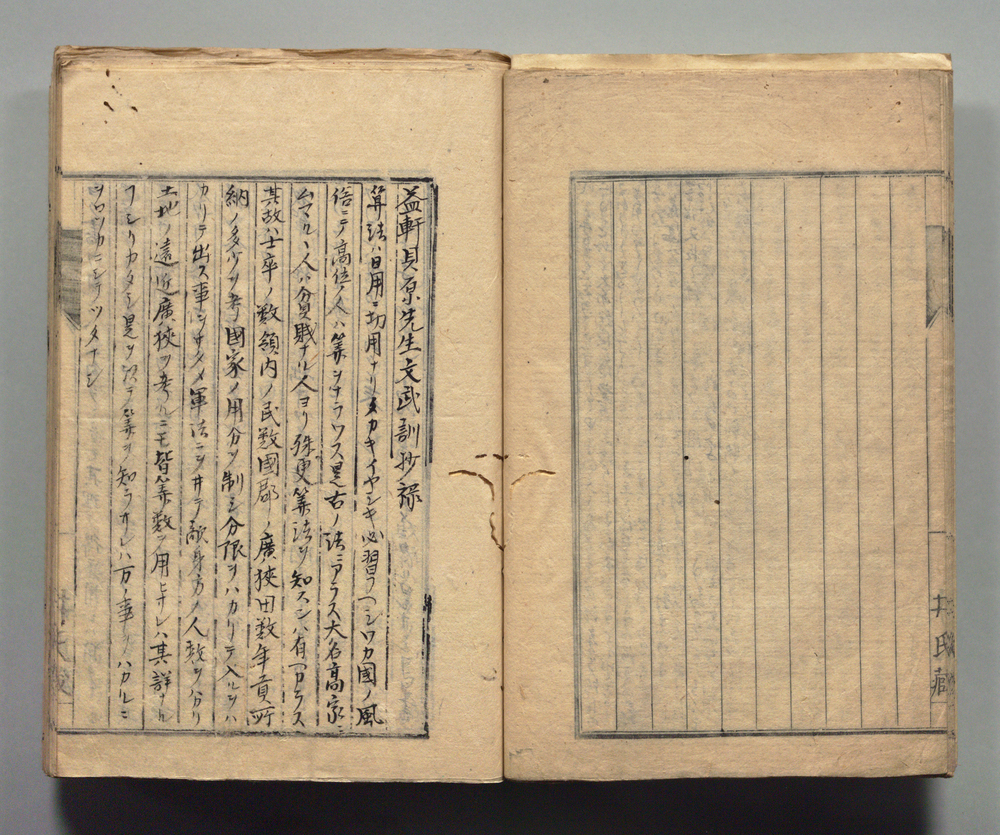 益軒貝原先生文武訓抄録
算法ハ日用ニ切用ナリタカキイヤシキ必習フヘシワカ國ノ風
俗ニテ高位ノ人ハ算ヲナラワス是古ノ法ニアラス大名高家ニ
ムマルヽ人ハ貧賎ナル人ヨリ殊更算法ヲ知スンハ有ヘカラス
其故ハ士卒ノ数領内ノ民数國郡ノ廣狭田数年貢所
納ノ多少ヲ考國家ノ用分ヲ制シ分限ヲハカリテ入ルヲハ
カリテ出ス事ヲサタメ軍法ニヲヰテ敵身方ノ人数ヲハカリ
土地ノ遠近廣狭ヲ考ルニモ皆算数ヲ用ヒサレハ其詳ナル
ヲシリカタシ是ヲ以テ算ヲ知ラサレハ万ノ事ヲハカルニ
ヲロソカニシテツタナシ
井氏蔵